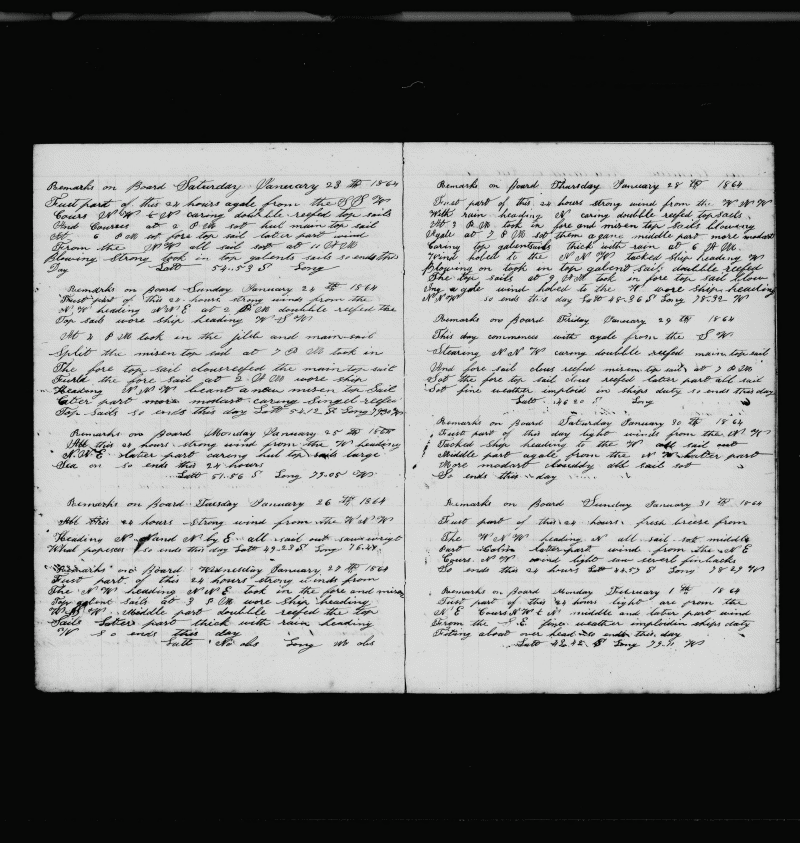 Remarks on Board Saturday January 23 th 1864
Furst part of this 24 hours agale from the S S W
Cours N W & N caring doubble reefed top sails
And Courses at 2 P M sot hul main top sail
At 6 P M sot fore top sail later part wind
From the N W all sail sot at 11 A M
Blowing strong took in top galents sails so ends this
Day Latt 54.53 S Long
Remarks on Board Sunday January 24 th 1864
Furst part of this 24 hours strong winds from the
N W heading N N E at 2 P M doubble reefed the
Top sail wore ship heading W S W
At 4 P M took in the jibb and main sail
Split the misen top sail at 7 P M took in
The fore top sail clous reefed the main top sail
Furld the fore sail at 2 A M wore ship
Heading N N W beant a new misen top sail
Later part more modart caring Singel reefed
Top Sails so ends this day Latt 54.12 S Long 79.30 W
Remarks on Board Monday January 25 th 1864
All this 24 hours strong wind from the W heading
N N E later part caring hul top sails large
Sea on so ends this 24 hours
Latt 51.56 S Long 79.05 W
Remarks on Board Tuesday January 26 th 1864
All this 24 hours strong wind from the W N W
Heading N and N by E all sail out saw wright
Whal poposes so ends this day Latt 49.23 S Long 76.44
Remarks on Board Wednesday January 27 th 1864
Furst part of this 24 hours strong winds from
The N W heading N N E took in the fore and misen
Top galent sails at 3 P M wore ship heading
W S W Middle part doubble reefed the top
Sails Later part thick with rain heading
W so ends this day
Latt No obs Long no obs
Remarks on Board Thursday January 28 th 1864
Furst part of this 24 hours strong wind from the W N W
With rain heading N caring doubble reefed top sails
At 3 P M took in fore and misen top sails blowing
Agale at 7 P M sot them agane middle part more modart
Caring top galentsails thick with rain at 6 A M
Wind holed to the N N W tacked ship heading W
Blowing on took in top galent sails doubble reefed
The top sails at 9 A M took in fore top sail blow
Ing a gale wind holed to the W wore ship heading
N N W so ends this day Latt 48.36 S Long 78.32 W
Remarks on Board Friday January 29 th 1864
This day commences with agale from the S W
Stearing N N W caring doubble reefed main top sail
And fore sail clous reefed misen top sail at 7 P M
Sot the fore top sail clous reefed later part all sail
Sot fine weather imploid in ships duty so ends this day
Latt 46.20 S Long
Remarks on Board Saturday January 30 th 1864
Furst part of this day light winds from the N W
Tacked ship heading to the W all sail out
Middle part agale from the N W Later part
More modart clouddy all sail sot
So ends this day
Remarks on Board Sunday January 31 th 1864
Furst part of this 24 hours fresh breese from
The W N W heading N all sail sot middle
Part Calm later part wind from the N E
Cours N W wind light saw severl finbacks
So ends this 24 hours Latt 44.57 S Long 78.29 W
Remarks on Board Monday February 1 th 1864
Furst part of this 24 hours light are from the
N E Cours N W & N middle and later part wind
From the S E fine weather imploid in ships duty
Foting about over head so ends this day
Latt 42.42 S Long 79.71 W